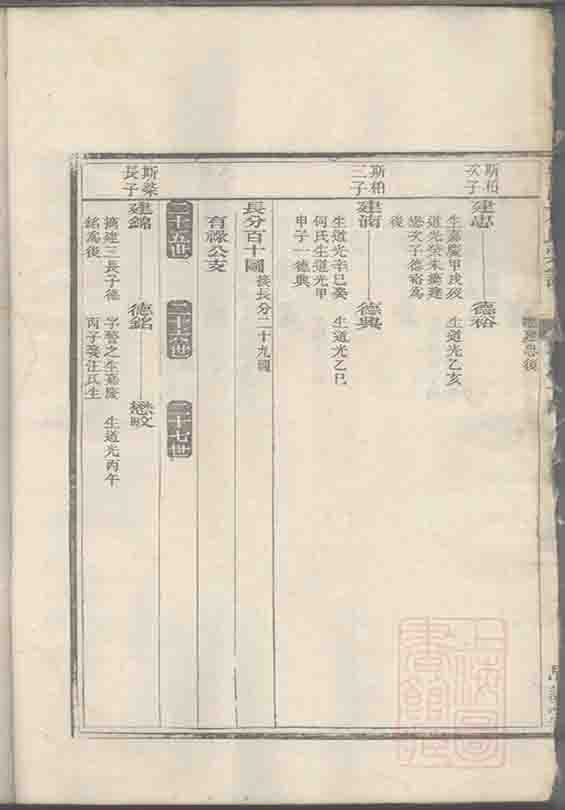 繼建忠後
斯柏次子
建忠 德裕
生嘉慶甲戌歿 生道光乙亥
道光癸未擕建
懋次子德裕爲
後
斯柏三子
建滴 德興
生道光辛巳娶 生道光乙巳
何氏生道光甲
甲子一德興
長分百十圖 接長分二十九圖
有祿公支
二十五世 二十六世 二十七世
斯榮長子
建錦 德銘 懋畋
擕建三長子德 字警之生嘉慶 生道光丙午
銘爲後 丙子娶汪氏生
上海圖書館藏